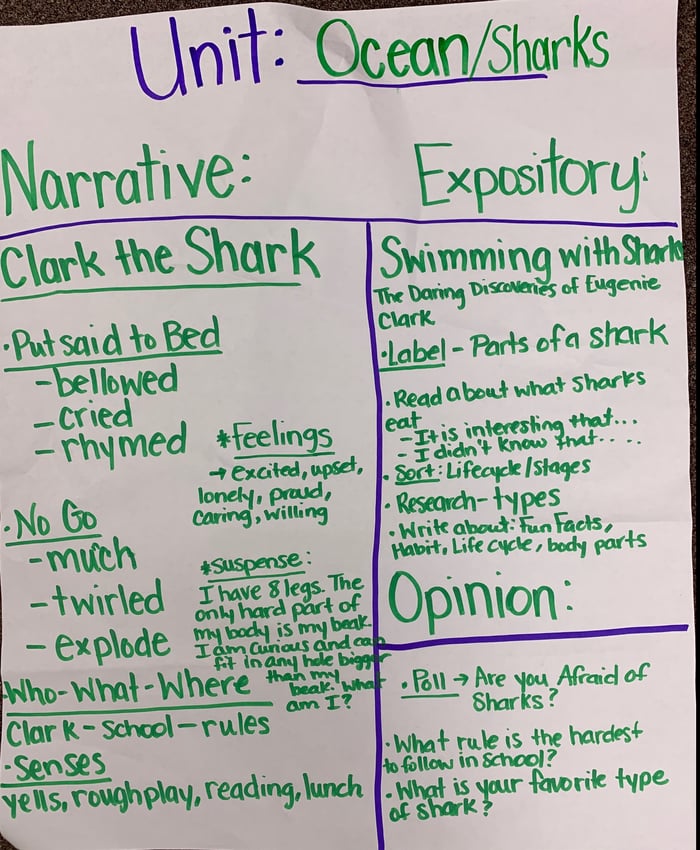 Unit: Ocean/Sharks
Narrative:
Clark the Shark
·Put said to Bed
-bellowed
-cried
-rhymed
*Feelings
→ excited, upset,
lonely, proud,
caring, willing
·No Go
-much
-twirled
-explode
*Suspense:
I have 8 legs. The
only hard part of
my body is my beak.
I am curious and can
fit in any hole bigger
than my
beak. What
am I?
Who-What-Where
Clark-School-rules
·Senses
yells, roughplay, reading, lunch
Expository:
Swimming with Sharks
The Daring Discoveries of Eugenie
Clark
·Label - Parts of a shark
·Read about what sharks
eat
-It is interesting that...
-I didn't know that....
·Sort: Lifecycle/stages
·Research-types
·Write about: Fun Facts,
Habit, Life cycle, body parts
Opinion:
·Poll → Are you Afraid of
Sharks?
·What rule is the hardest
to follow in School?
·What is your favorite type
of shark?